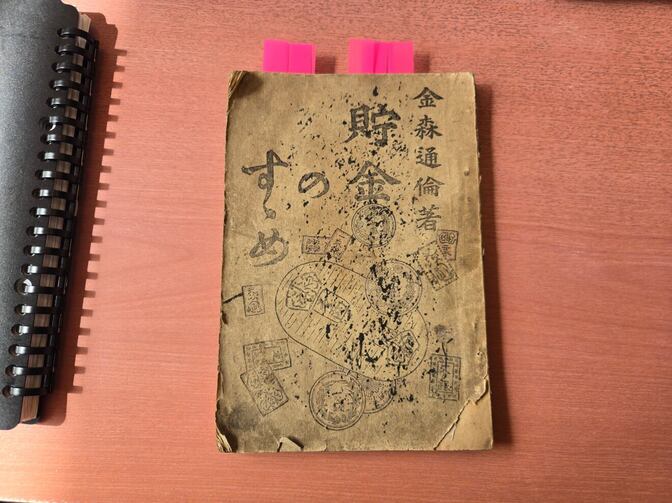 金森通倫著
貯金
の
すゝめ